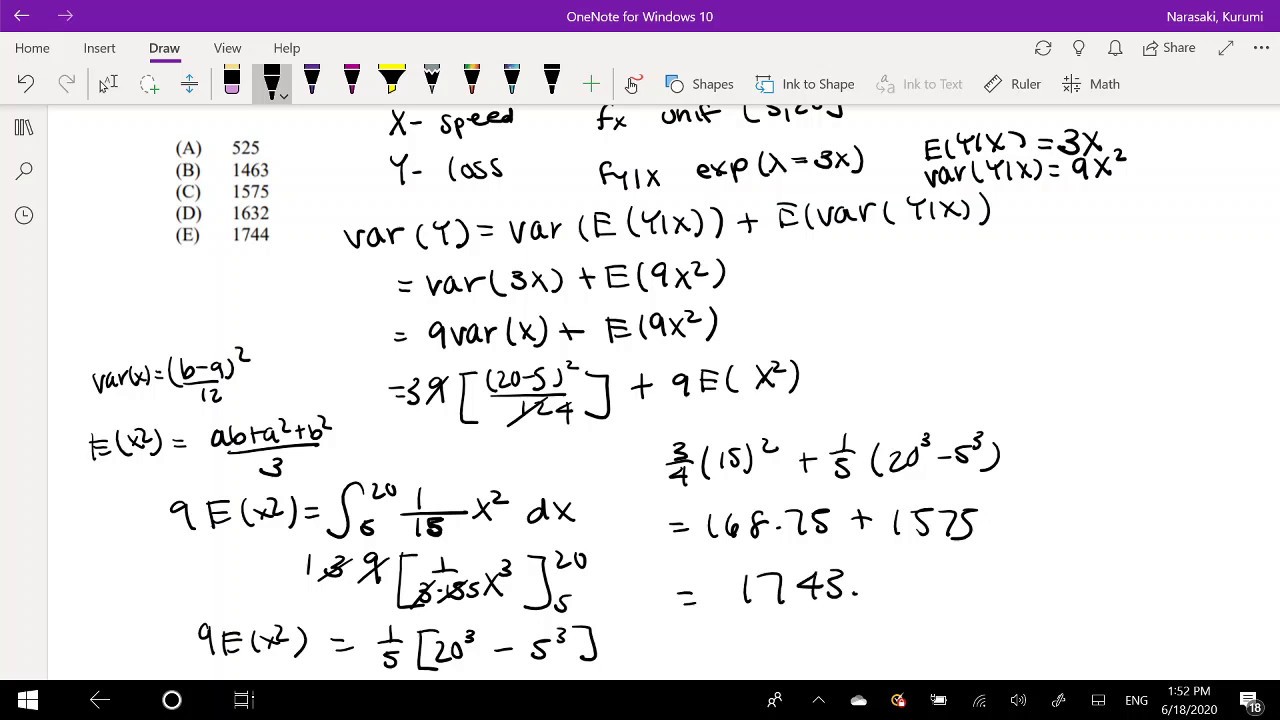 OneNote for Windows 10
Narasaki, Kurumi
Home Insert Draw View Help
Share
Shapes Ink to Shape Ink to Text Ruler Math
X- speed fx unif [5,20]
(A) 525
(B) 1463
(C) 1575
(D) 1632
(E) 1744
Y- loss fY|X exp(λ=3x)
E(Y|X) = 3X
var(Y|X) = 9X²
var(Y) = var(E(Y|X)) + E(var(Y|X))
= var(3X) + E(9X²)
= 9var(X) + E(9X²)
=3 9 [(20-5)²/12 4] + 9E(X²)
var(x) = (b-a)²/12
E(x²) = ab+a²+b²/3
9E(x²) = ∫₅²⁰ 1/15 x² dx
1 3 9 [1/3·15 5 x³]₅²⁰
9E(x²) = 1/5 [20³ - 5³]
3/4 (15)² + 1/5 (20³ - 5³)
= 168.75 + 1575
= 1743.
ENG
1:52 PM
6/18/2020
18